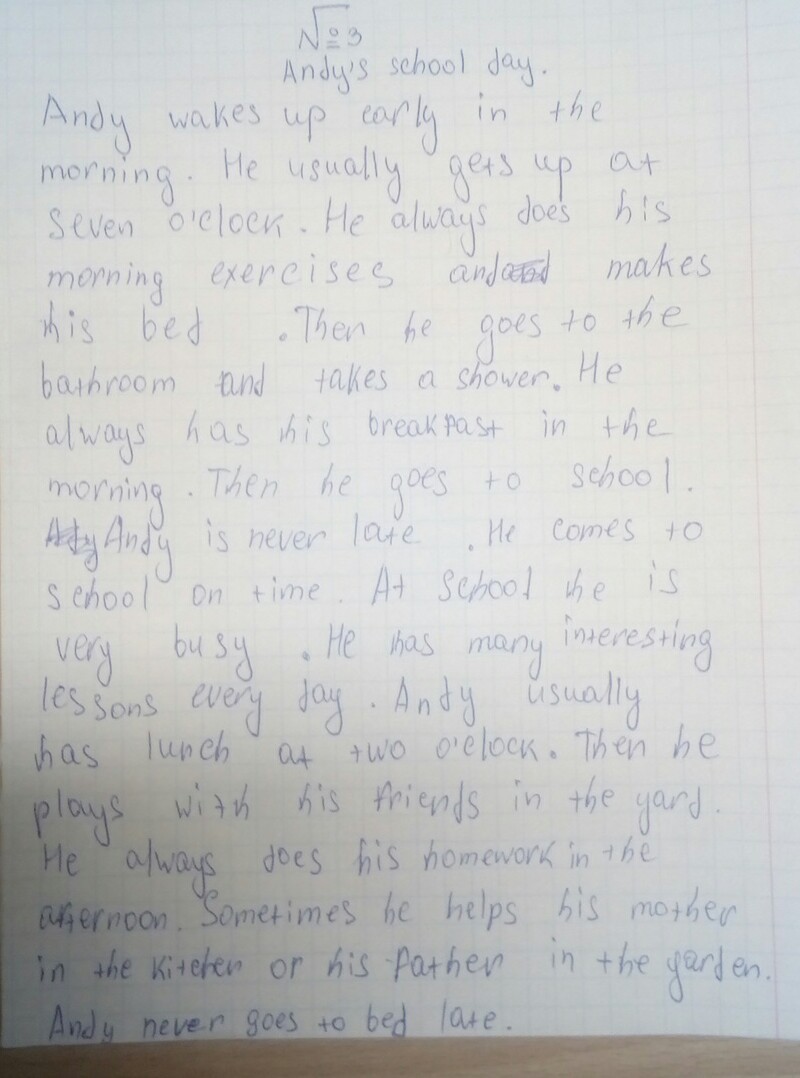 №3
Andy's school day.
Andy wakes up early in the
morning. He usually gets up at
seven o'clock. He always does his
morning exercises and makes
his bed. Then he goes to the
bathroom and takes a shower. He
always has his breakfast in the
morning. Then he goes to school.
Andy is never late. He comes to
school on time. At school he is
very busy. He has many interesting
lessons every day. Andy usually
has lunch at two o'clock. Then he
plays with his friends in the yard.
He always does his homework in the
afternoon. Sometimes he helps his mother
in the kitchen or his father in the garden.
Andy never goes to bed late.